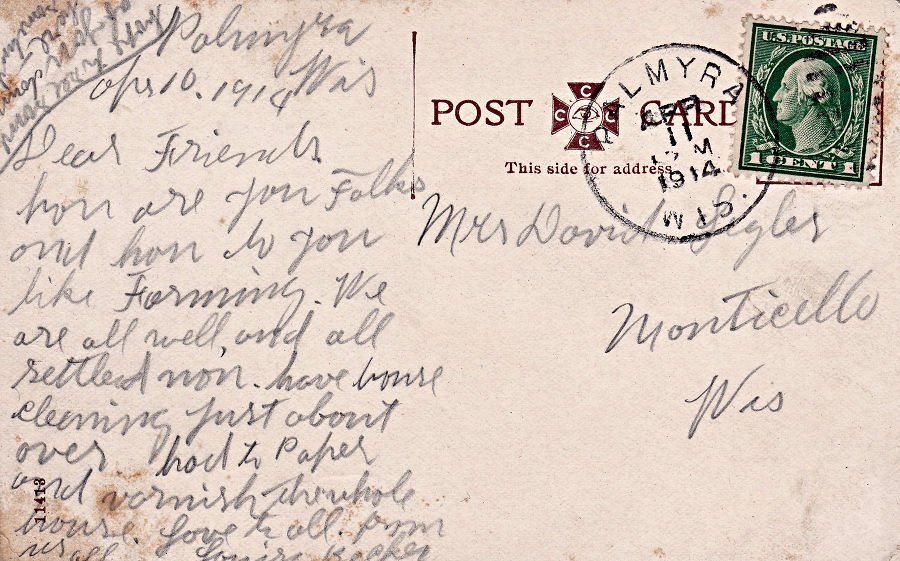 Palmyra
Apr 10. 1914 Wis
Dear Friends
how are you Folks
and how do you
like Farming. We
are all well, and all
settled now. have house
cleaning just about
over had to Paper
and varnish the whole
house. Love to all. from
us all
POST CARD
C C C C
This side for address.
PALMYRA
APR
11
M
1914
WIS.
U.S. POSTAGE
1 CENT 1
Mrs David
Monticello
Wis
11413